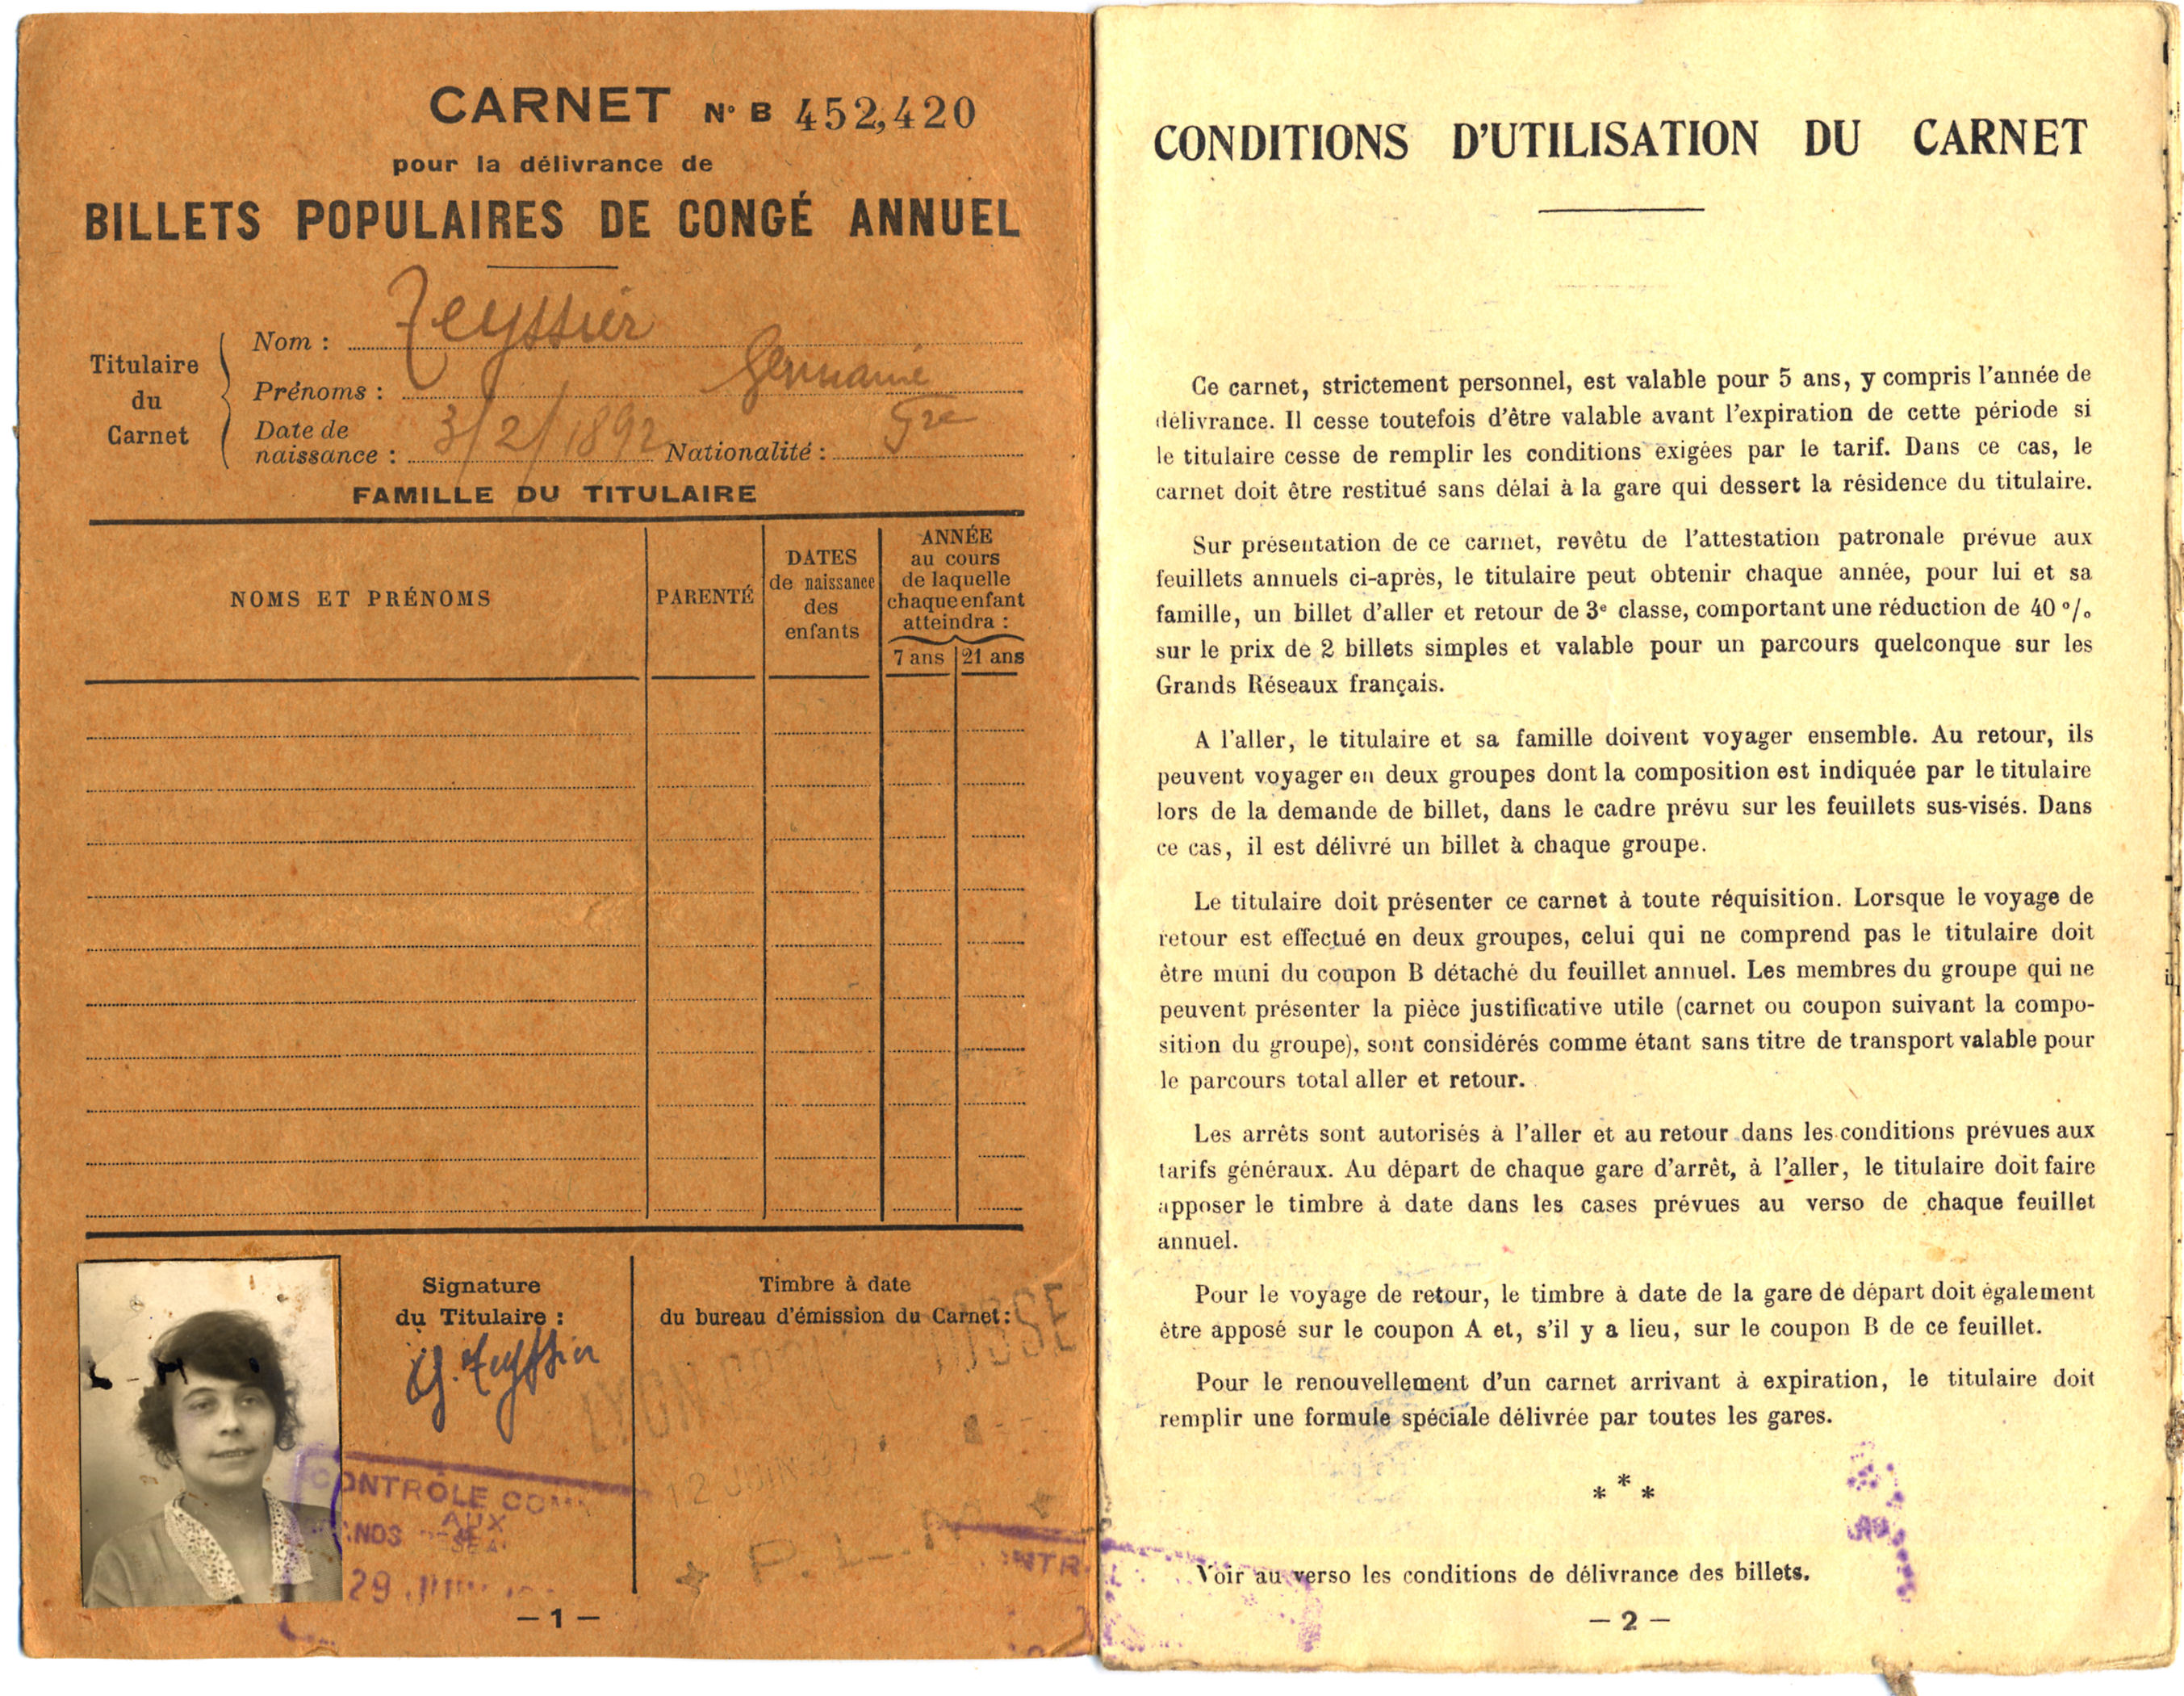 CARNET N° B 452,420
pour la délivrance de
BILLETS POPULAIRES DE CONGÉ ANNUEL
Titulaire du Carnet
Nom : Teyssier
Prénoms : Germaine
Date de naissance : 3/2/1892 Nationalité : Fse
FAMILLE DU TITULAIRE
NOMS ET PRÉNOMS
PARENTÉ
DATES
de naissance
des
enfants
ANNÉE
au cours
de laquelle
chaque enfant
atteindra :
7 ans 21 ans
Signature
du Titulaire :
G. Teyssier
Timbre à date
du bureau d'émission du Carnet :
CONTRÔLE
AUX
29
12 JUIN
P. L. M
— 1 —
CONDITIONS D'UTILISATION DU CARNET
Ce carnet, strictement personnel, est valable pour 5 ans, y compris l'année de
délivrance. Il cesse toutefois d'être valable avant l'expiration de cette période si
le titulaire cesse de remplir les conditions exigées par le tarif. Dans ce cas, le
carnet doit être restitué sans délai à la gare qui dessert la résidence du titulaire.
Sur présentation de ce carnet, revêtu de l'attestation patronale prévue aux
feuillets annuels ci-après, le titulaire peut obtenir chaque année, pour lui et sa
famille, un billet d'aller et retour de 3e classe, comportant une réduction de 40 %
sur le prix de 2 billets simples et valable pour un parcours quelconque sur les
Grands Réseaux français.
A l'aller, le titulaire et sa famille doivent voyager ensemble. Au retour, ils
peuvent voyager en deux groupes dont la composition est indiquée par le titulaire
lors de la demande de billet, dans le cadre prévu sur les feuillets sus-visés. Dans
ce cas, il est délivré un billet à chaque groupe.
Le titulaire doit présenter ce carnet à toute réquisition. Lorsque le voyage de
retour est effectué en deux groupes, celui qui ne comprend pas le titulaire doit
être muni du coupon B détaché du feuillet annuel. Les membres du groupe qui ne
peuvent présenter la pièce justificative utile (carnet ou coupon suivant la compo-
sition du groupe), sont considérés comme étant sans titre de transport valable pour
le parcours total aller et retour.
Les arrêts sont autorisés à l'aller et au retour dans les conditions prévues aux
tarifs généraux. Au départ de chaque gare d'arrêt, à l'aller, le titulaire doit faire
apposer le timbre à date dans les cases prévues au verso de chaque feuillet
annuel.
Pour le voyage de retour, le timbre à date de la gare de départ doit également
être apposé sur le coupon A et, s'il y a lieu, sur le coupon B de ce feuillet.
Pour le renouvellement d'un carnet arrivant à expiration, le titulaire doit
remplir une formule spéciale délivrée par toutes les gares.
* * *
Voir au verso les conditions de délivrance des billets.
— 2 —